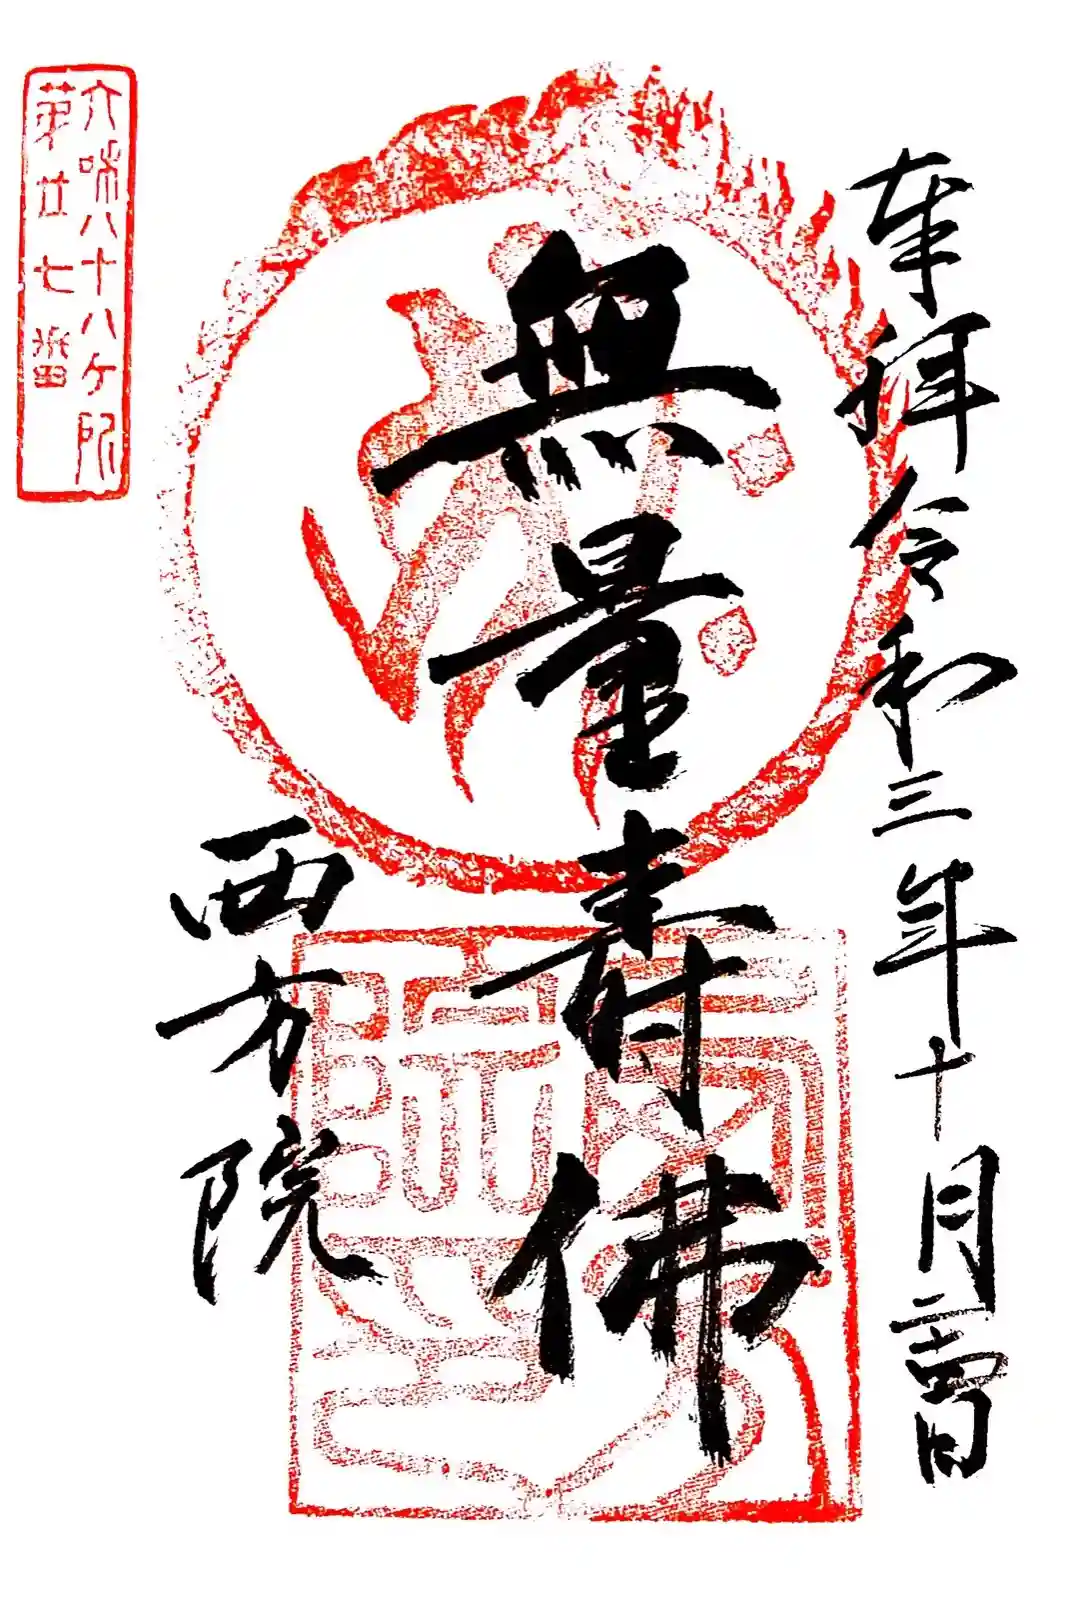 奉拝 令和三年十月二十四日
無量寿佛
西方院
大和八十八ケ所
第廿七番